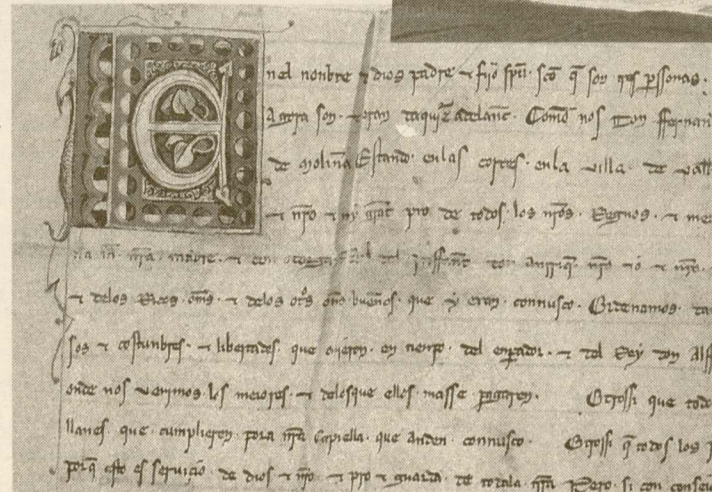 En el nonbre de dios padre ⁊ fijo spũ. sc̃o q̃ son tres perssonas.
agora son. ⁊ seran daqui adelant. Comõ nos Don fferran
de Molina Estando. enlas cortes. enla villa. de vall
⁊ nr̃o ⁊ muy grant pro de todos. los nr̃os. Regnos. ⁊ me
nr̃a madre. ⁊ con del Inffant. don Anrriq̃. nr̃o tio ⁊ nr̃o.
⁊ delos Ricos. om̃s. ⁊ delos otr̃s om̃s buenos. que y eran. connusco. Ordenamos.
sos ⁊ costunbres. ⁊ libertades. que ouieron. en tienpo. del enperador. ⁊ del Rey don Alff
onde nos uenimos. los meiores. ⁊ delosque ellos. masse pagaren. Otrossi. que todo
llanes. que. cumplieren. pora nr̃a Capiella. que anden. connusco. Otrossi q̃ todos los
porq̃ esto es seruicio. de dios ⁊ nr̃o. ⁊ pro ⁊ guarda. de todala. nr̃a Pero. si con